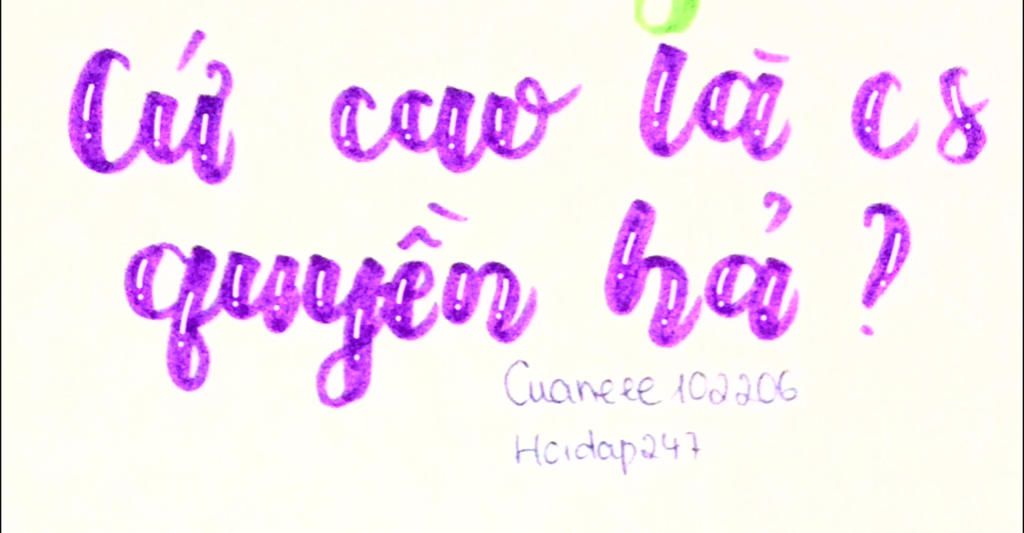 Cứ cao là cs
quyền hả?
Cuaneee102206
Hoidap247